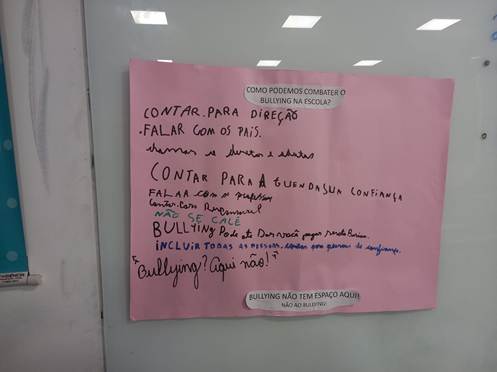 COMO PODEMOS COMBATER O
BULLYING NA ESCOLA?
CONTAR PARA DIREÇÃO
.FALAR COM OS PAIS.
CONTAR PARA A GUEN DA SUA CONFIANÇA
FALAR com o professor
Contar Responsavel
NÃO SE CALE
BULLYING Pode
INCLUIR TODAS AS PESSOAS. de confiança.
"Bullying? Aqui não!"
BULLYING NÃO TEM ESPAÇO AQUI!
NÃO AO BULLYING!